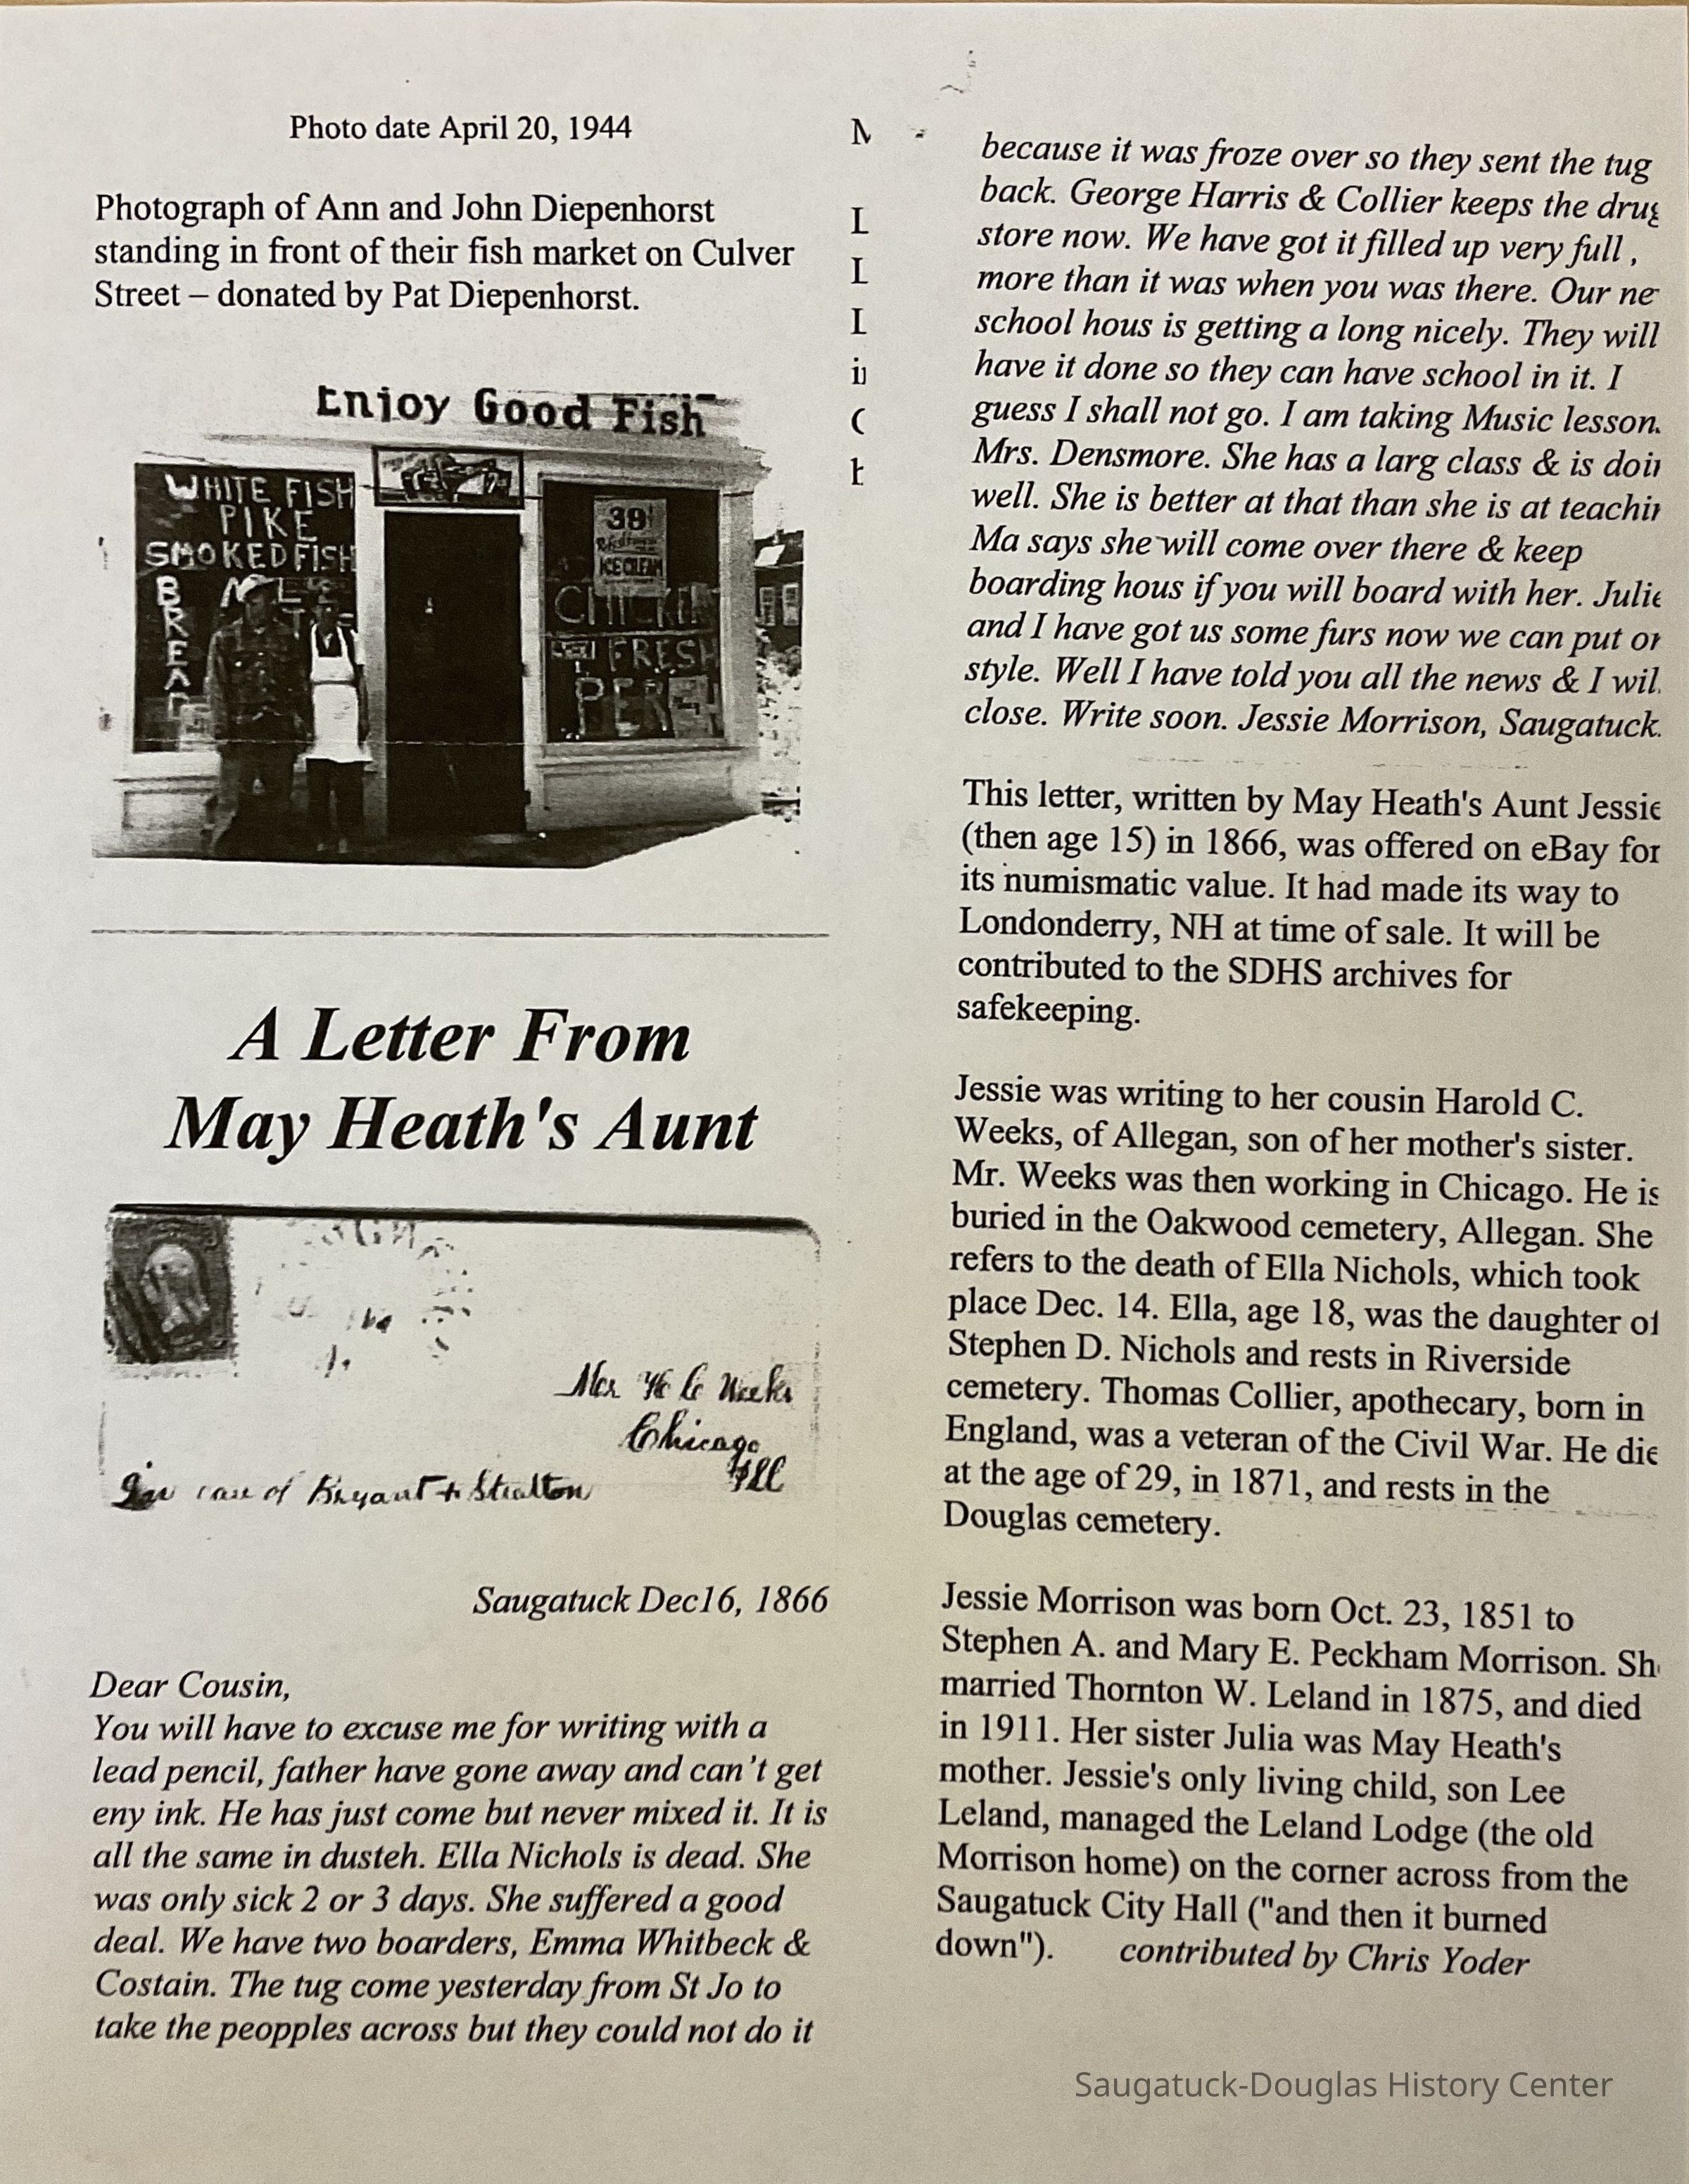 Photo date April 20, 1944
Photograph of Ann and John Diepenhorst
standing in front of their fish market on Culver
Street – donated by Pat Diepenhorst.
Enjoy Good Fish
WHITE FISH
PIKE
SMOKED FISH
BREAD
39¢
ICE CREAM
CHICKEN
FRESH
PERCH
A Letter From
May Heath's Aunt
Mr H C Weeks
Chicago
Ill
In care of Bryant & Stratton
Saugatuck Dec16, 1866
Dear Cousin,
You will have to excuse me for writing with a
lead pencil, father have gone away and can't get
eny ink. He has just come but never mixed it. It is
all the same in dusteh. Ella Nichols is dead. She
was only sick 2 or 3 days. She suffered a good
deal. We have two boarders, Emma Whitbeck &
Costain. The tug come yesterday from St Jo to
take the peopples across but they could not do it
because it was froze over so they sent the tug
back. George Harris & Collier keeps the drug
store now. We have got it filled up very full ,
more than it was when you was there. Our ne
school hous is getting a long nicely. They will
have it done so they can have school in it. I
guess I shall not go. I am taking Music lesson
Mrs. Densmore. She has a larg class & is doin
well. She is better at that than she is at teachin
Ma says she will come over there & keep
boarding hous if you will board with her. Julie
and I have got us some furs now we can put on
style. Well I have told you all the news & I wil
close. Write soon. Jessie Morrison, Saugatuck.
This letter, written by May Heath's Aunt Jessie
(then age 15) in 1866, was offered on eBay for
its numismatic value. It had made its way to
Londonderry, NH at time of sale. It will be
contributed to the SDHS archives for
safekeeping.
Jessie was writing to her cousin Harold C.
Weeks, of Allegan, son of her mother's sister.
Mr. Weeks was then working in Chicago. He is
buried in the Oakwood cemetery, Allegan. She
refers to the death of Ella Nichols, which took
place Dec. 14. Ella, age 18, was the daughter of
Stephen D. Nichols and rests in Riverside
cemetery. Thomas Collier, apothecary, born in
England, was a veteran of the Civil War. He die
at the age of 29, in 1871, and rests in the
Douglas cemetery.
Jessie Morrison was born Oct. 23, 1851 to
Stephen A. and Mary E. Peckham Morrison. Sh
married Thornton W. Leland in 1875, and died
in 1911. Her sister Julia was May Heath's
mother. Jessie's only living child, son Lee
Leland, managed the Leland Lodge (the old
Morrison home) on the corner across from the
Saugatuck City Hall ("and then it burned
down"). contributed by Chris Yoder
Saugatuck-Douglas History Center